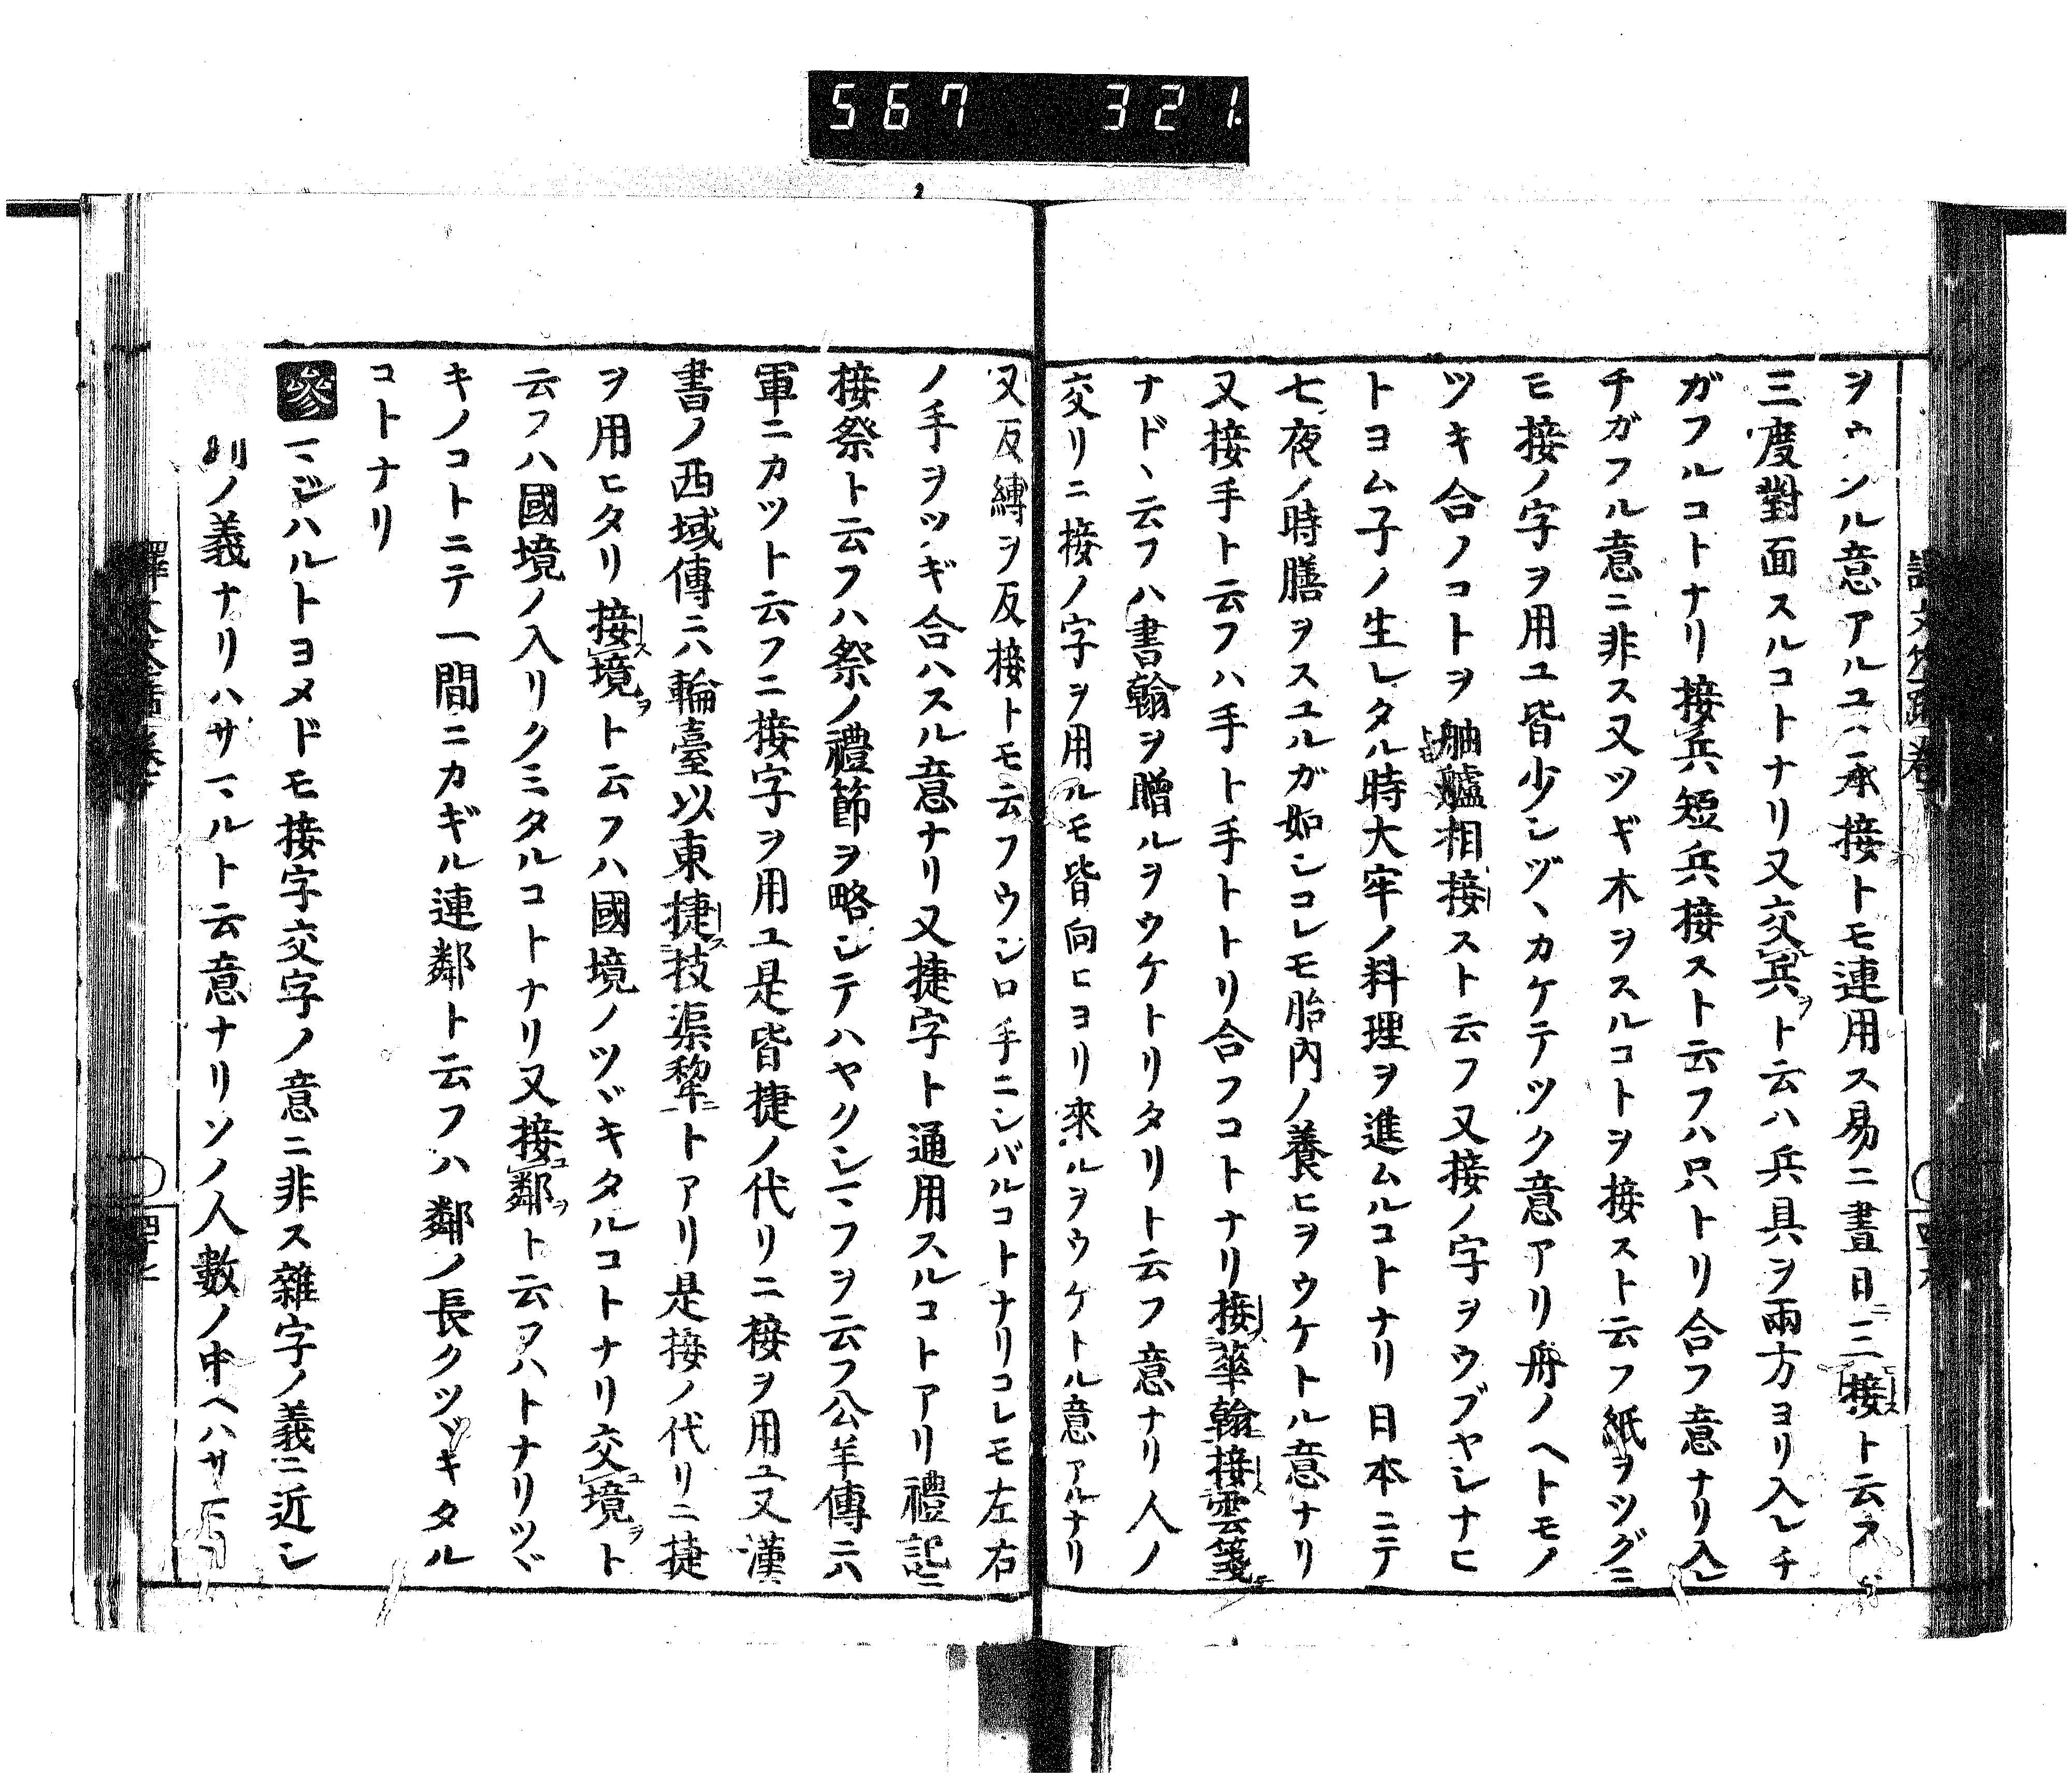 567 321
ヲウツル意アルユヘ承接トモ連用ス易ニ晝日ニ三接スト云フ
三度對面スルコトナリ又交兵ヲト云ハ兵具ヲ兩方ヨリ入レチ
ガフルコトナリ接兵短兵接スト云フハ只トリ合フ意ナリ入レ
チガフル意ニ非ス又ツギ木ヲスルコトヲ接スト云フ紙ヲツグニ
モ接ノ字ヲ用ユ皆少シヅヽカケテツク意アリ舟ノヘトモノ
ツキ合ノコトヲ舳艫相接スト云フ又接ノ字ヲウブヤシナヒ
トヨム子ノ生レタル時大牢ノ料理ヲ進ムルコトナリ日本ニテ
七夜ノ時膳ヲスユルガ如シコレモ胎內ノ養ヒヲウケトル意ナリ
又接手ト云フハ手ト手トトリ合フコトナリ接華翰接雲箋
ナドヽ云フハ書翰ヲ贈ルヲウケトリタリト云フ意ナリ人ノ
交リニ接ノ字ヲ用ルモ皆向ヒヨリ來ルヲウケトル意アルナリ
又反縛ヲ反接トモ云フウシロ手ニシバルコトナリコレモ左右
ノ手ヲツギ合ハスル意ナリ又捷字ト通用スルコトアリ禮記ニ
接祭ト云フハ祭ノ禮節ヲ略シテハヤクシマフヲ云フ公羊傳ニハ
軍ニカツト云フニ接字ヲ用ユ是皆捷ノ代リニ接ヲ用ユ又漢
書ノ西域傳ニハ輪臺以東捷技渠犂トアリ是接ノ代リニ捷
ヲ用ヒタリ接境ト云フハ國境ノツヾキタルコトナリ交境ヲト
云フハ國境ノ入リクミタルコトナリ又接鄰ヲト云フハトナリツヾ
キノコトニテ一間ニカギル連鄰ト云フハ鄰ノ長クツヾキタル
コトナリ
參 マジハルトヨメドモ接字交字ノ意ニ非ス雜字ノ義ニ近シ
ノ義ナリハサマルト云意ナリソノ人數ノ中ヘハサ